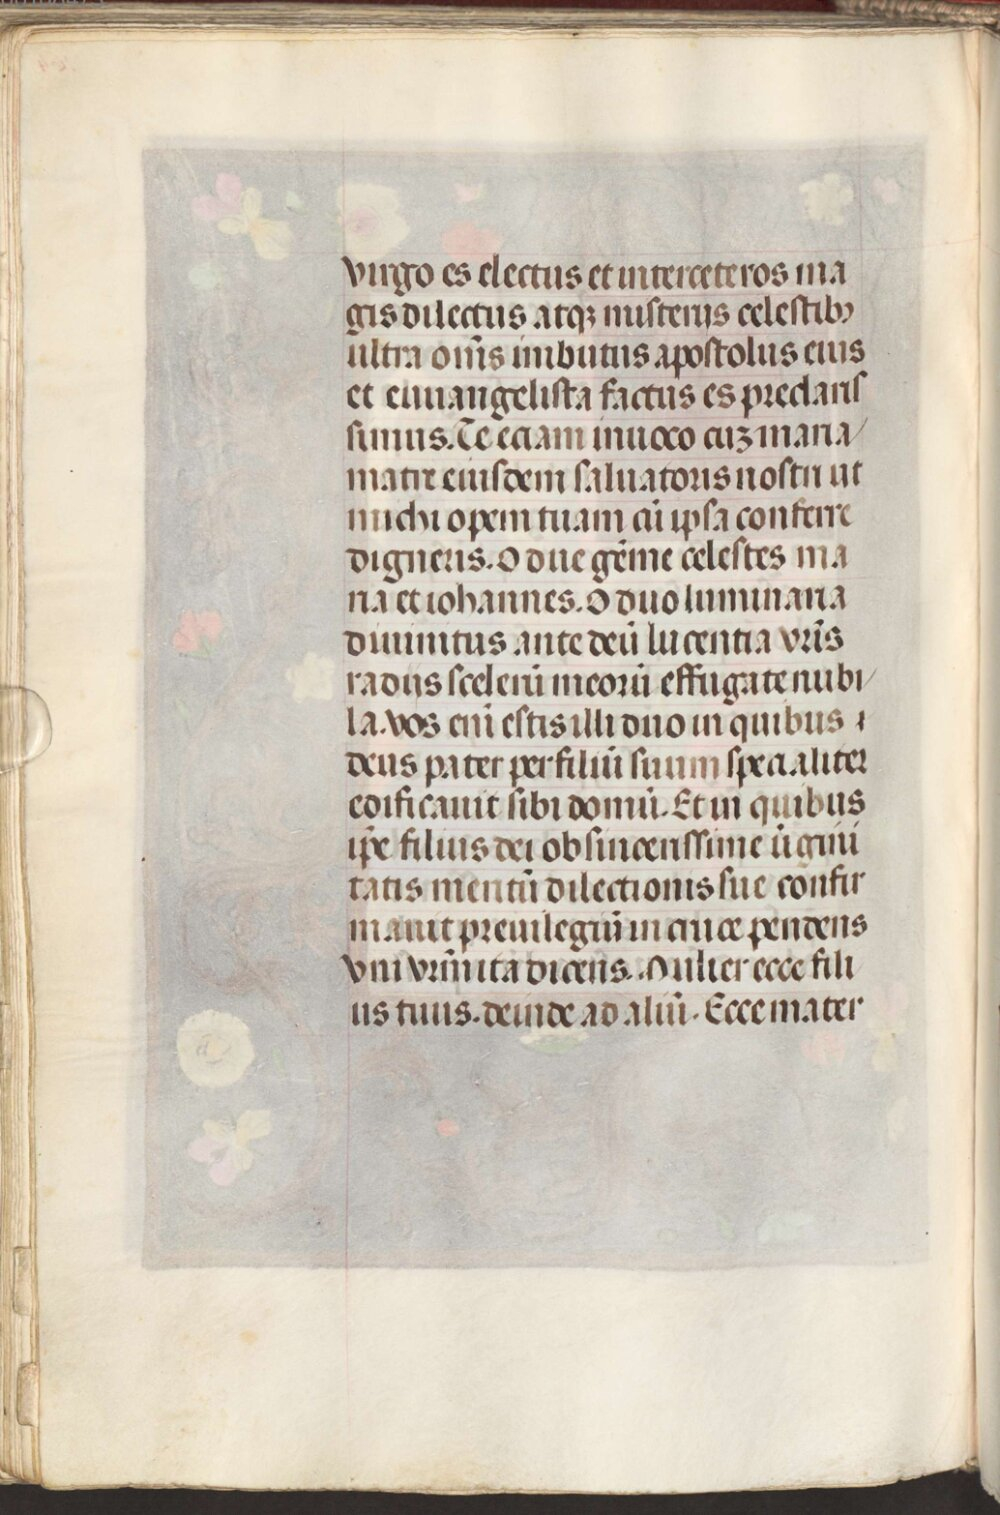 virgo es electus et inter ceteros ma
gis dilectus atqꝫ misterijs celestibꝫ
ultra om̅s imbutus apostolus eius
et euuangelista factus es preclaris
simus. Te eciam inuoco cuꝫ maria/
matre eiusdem saluatoris nostri ut
michi opem tuam cū ip̅sa conferre
digneris. O due gēme celestes ma
ria et iohannes. O duo luminaria
diuinitus ante deū lucentia vr̅is
radijs scelerū meorū effugate nubi/
la. Vos eni̅ estis illi duo in quibus
deus pater per filiū suum specialiter
edificauit sibi domū. Et in quibus
ip̅e filius dei ob sincerissime ūgini
tatis meritū dilectionis sue confir
mauit preuilegiū in cruce pendens
vni vr̅m ita dicens. Mulier ecce fili
us tuus. deinde ad aliū. Ecce mater